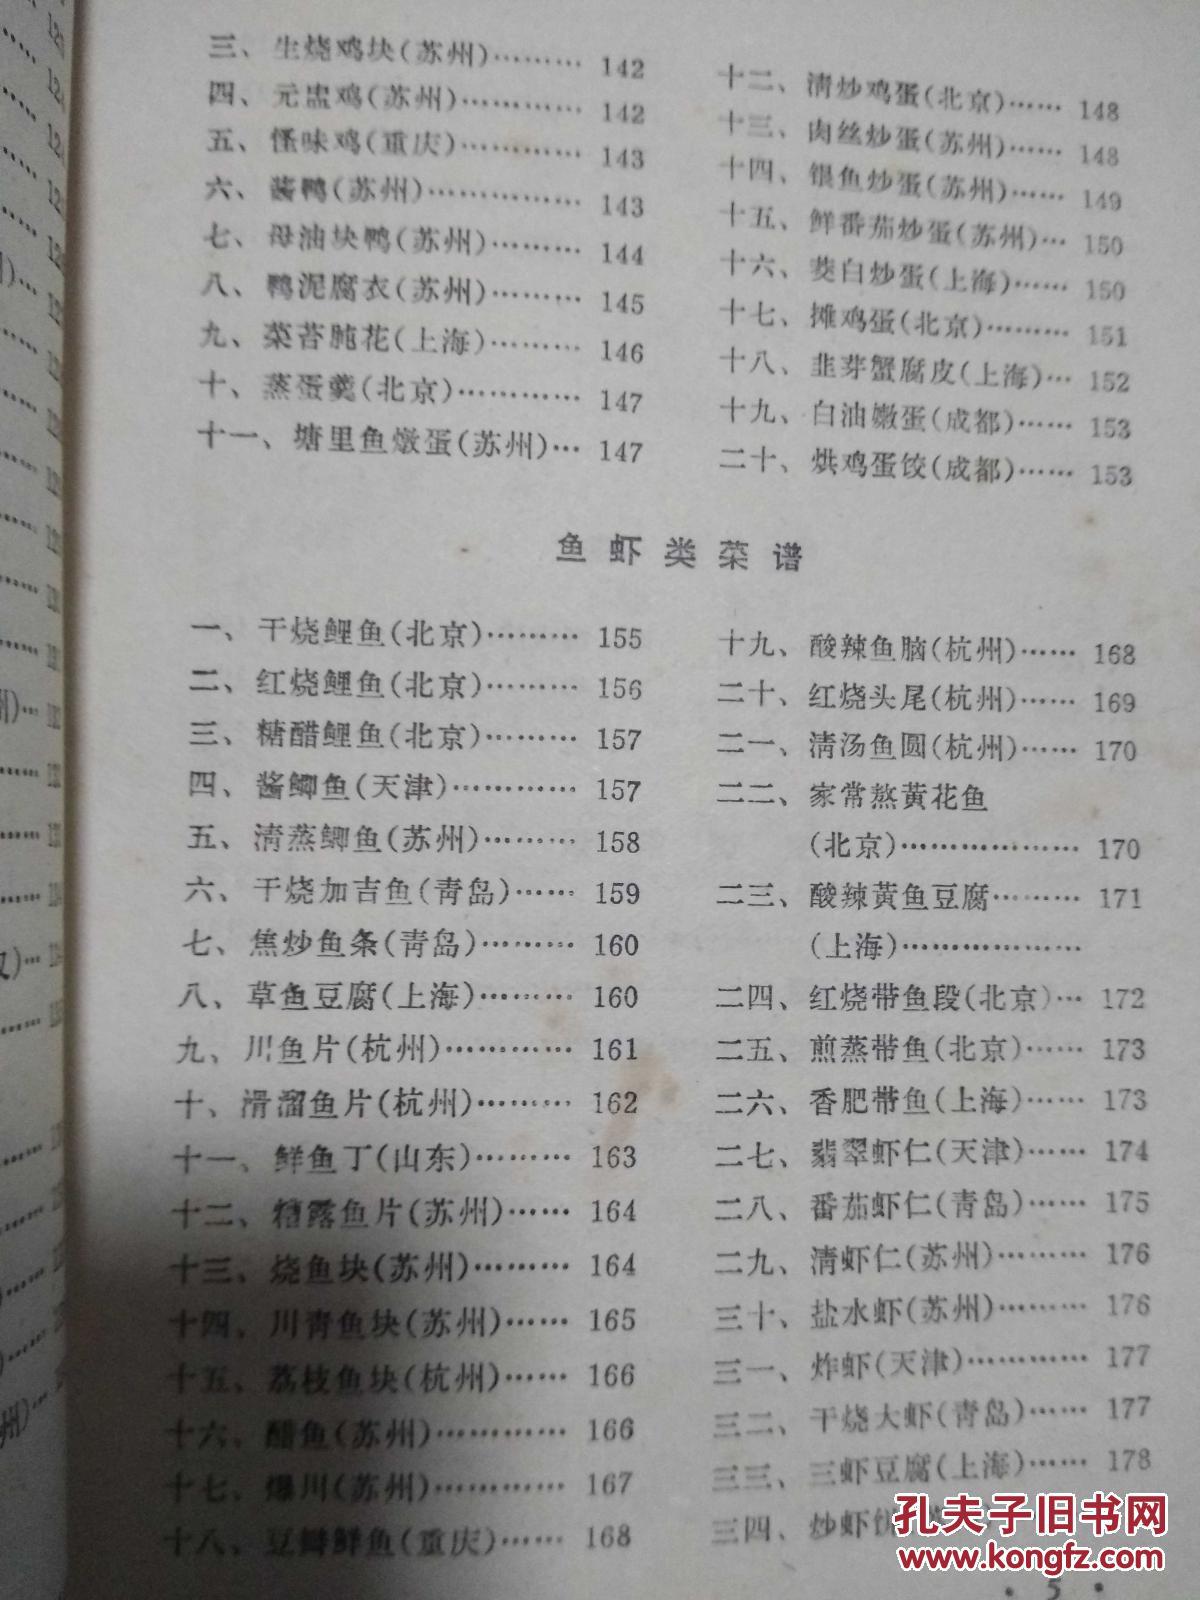 三、生烧鸡块(苏州)……… 142
四、元盅鸡(苏州)………… 142
五、怪味鸡(重庆)………… 143
六、酱鸭(苏州)…………… 143
七、母油块鸭(苏州)……… 144
八、鸭泥腐衣(苏州)……… 145
九、菜苔肫花(上海)……… 146
十、蒸蛋羹(北京)………… 147
十一、塘里鱼燉蛋(苏州)… 147
十二、清炒鸡蛋(北京)…… 148
十三、肉丝炒蛋(苏州)…… 148
十四、银鱼炒蛋(苏州)…… 149
十五、鲜番茄炒蛋(苏州)… 150
十六、茭白炒蛋(上海)…… 150
十七、摊鸡蛋(北京)……… 151
十八、韭芽蟹腐皮(上海)… 152
十九、白油嫩蛋(成都)…… 153
二十、烘鸡蛋饺(成都)…… 153
鱼虾类菜谱
一、干烧鲤鱼(北京)……… 155
二、红烧鲤鱼(北京)……… 156
三、糖醋鲤鱼(北京)……… 157
四、酱鲫鱼(天津)………… 157
五、清蒸鲫鱼(苏州)……… 158
六、干烧加吉鱼(青岛)…… 159
七、焦炒鱼条(青岛)……… 160
八、草鱼豆腐(上海)……… 160
九、川鱼片(杭州)………… 161
十、滑溜鱼片(杭州)……… 162
十一、鲜鱼丁(山东)……… 163
十二、糟露鱼片(苏州)…… 164
十三、烧鱼块(苏州)……… 164
十四、川青鱼块(苏州)…… 165
十五、荔枝鱼块(杭州)…… 166
十六、醋鱼(苏州)………… 166
十七、爆川(苏州)………… 167
十八、豆瓣鲜鱼(重庆)…… 168
十九、酸辣鱼脑(杭州)…… 168
二十、红烧头尾(杭州)…… 169
二一、清汤鱼圆(杭州)…… 170
二二、家常熬黄花鱼
(北京)……………… 170
二三、酸辣黄鱼豆腐……… 171
(上海)………………
二四、红烧带鱼段(北京)… 172
二五、煎蒸带鱼(北京)…… 173
二六、香肥带鱼(上海)…… 173
二七、翡翠虾仁(天津)…… 174
二八、番茄虾仁(青岛)…… 175
二九、清虾仁(苏州)……… 176
三十、盐水虾(苏州)……… 176
三一、炸虾(天津)………… 177
三二、干烧大虾(青岛)…… 177
三三、三虾豆腐(上海)…… 178
三四、炒虾
孔夫子旧书网
www.kongfz.com
· 5 ·